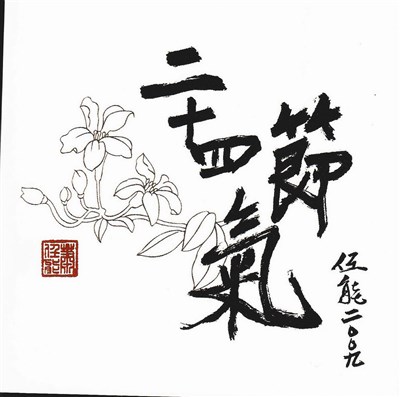 二十四
節氣
任能二〇〇九